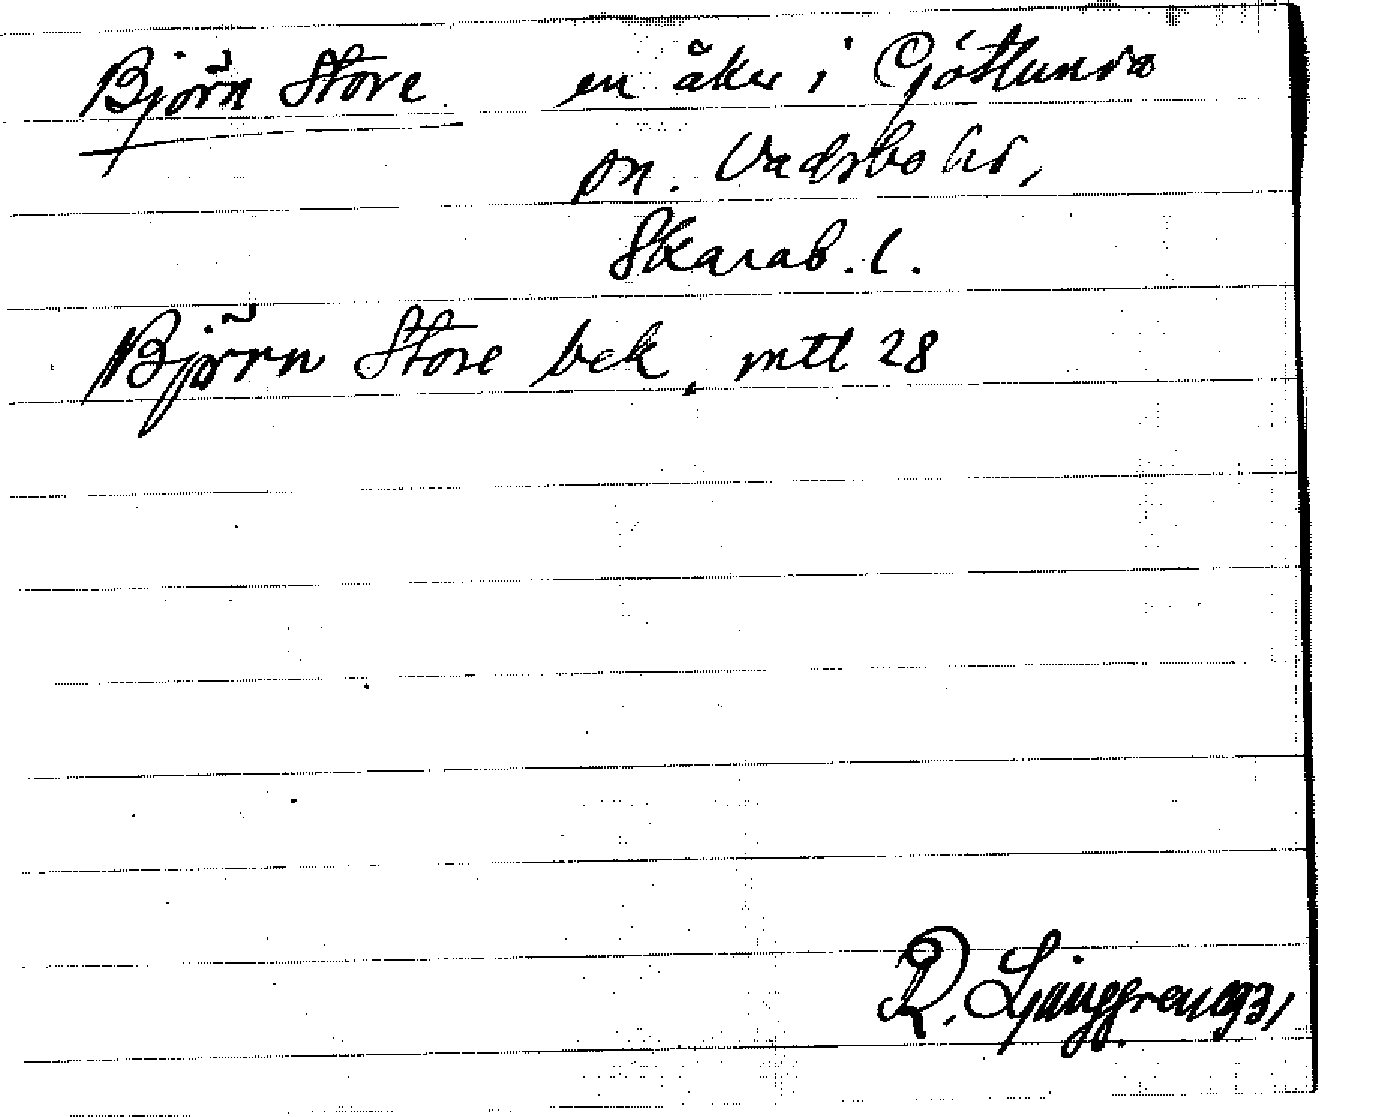 Björn Store en åker i Götlunda
sn. Vadsbo hd,
Skarab. l.
Björn Store bek. mtl 28
R. Ljunggren 1931